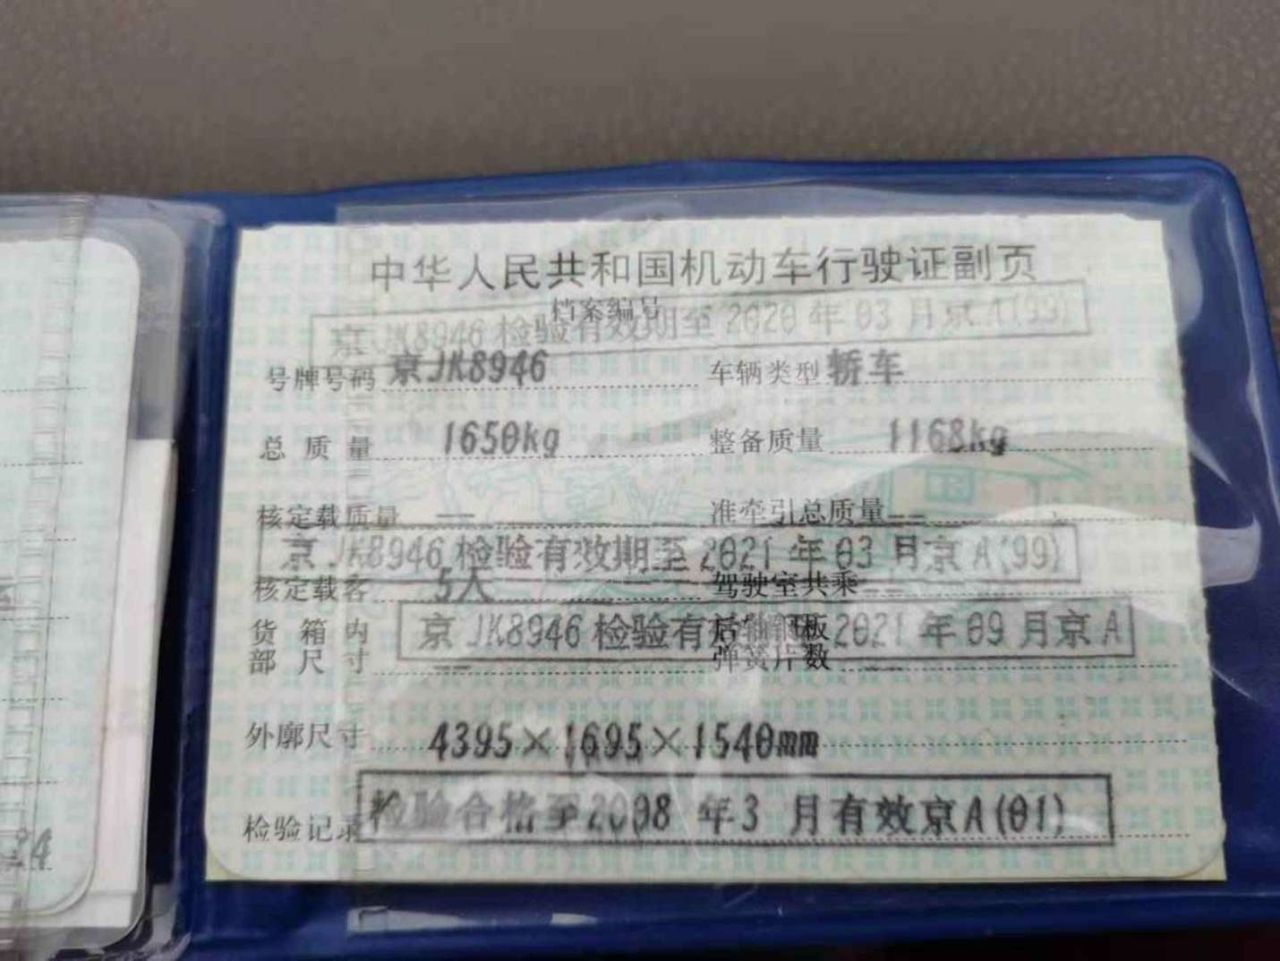 中华人民共和国机动车行驶证副页
档案编号
京JK8946检验有效期至2020年03月京A(99)
号牌号码 京JK8946 车辆类型 轿车
总质量 1650kg 整备质量 1168kg
核定载质量 -- 准牵引总质量 --
京JK8946检验有效期至2021年03月京A(99)
核定载客 5人 驾驶室共乘 --
京JK8946检验有 2021年09月京A
货箱内部尺寸 -- 后轴钢板弹簧片数 --
外廓尺寸 4395×1695×1540mm
检验记录 检验合格至2008年3月有效京A(01)